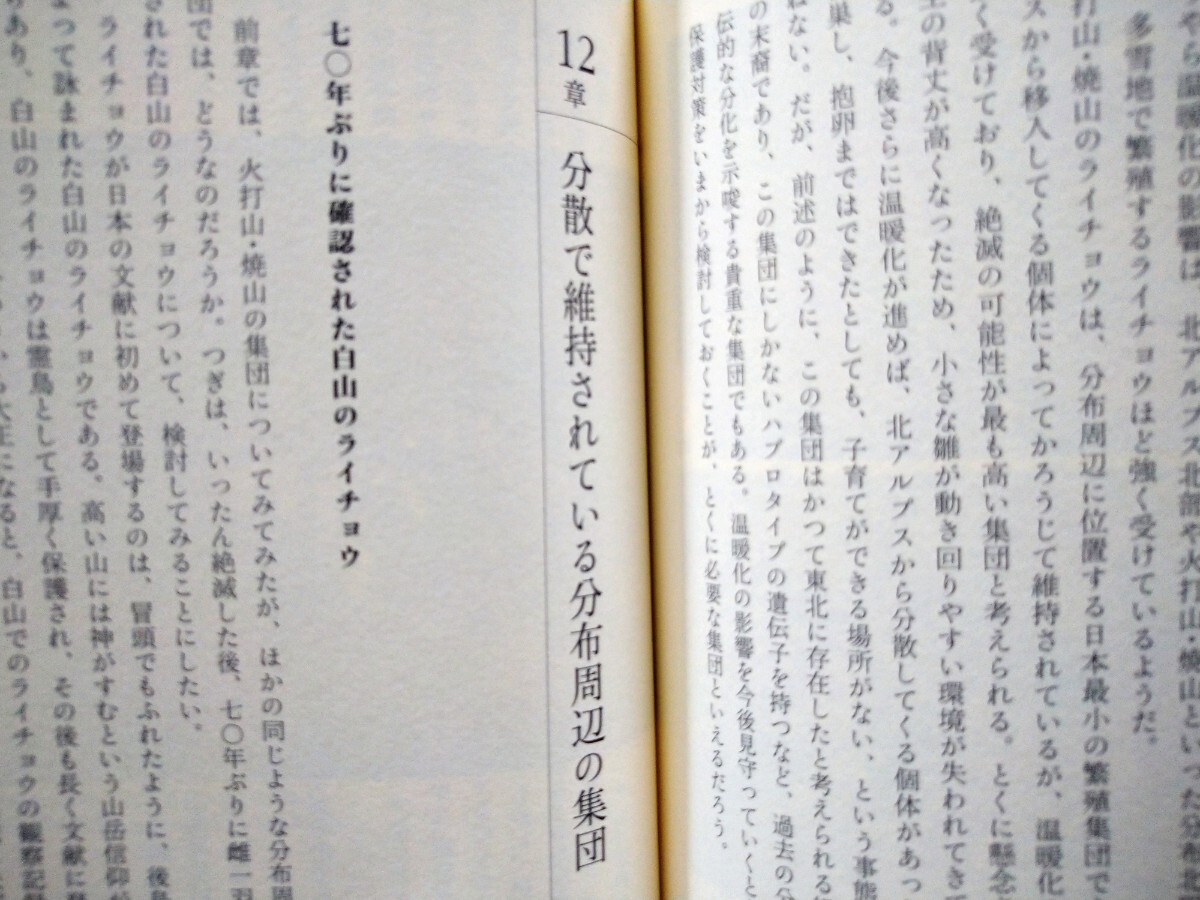 やら温暖化の影響は、北アルプス北部や火打山・焼山といった分布北
多雪地で繁殖するライチョウほど強く受けているようだ。
打山・焼山のライチョウは、分布周辺に位置する日本最小の繁殖集団で
スから移入してくる個体によってかろうじて維持されているが、温暖化
く受けており、絶滅の可能性が最も高い集団と考えられる。とくに懸念
の背丈が高くなったため、小さな雛が動き回りやすい環境が失われてき
る。今後さらに温暖化が進めば、北アルプスから分散してくる個体があっ
巣し、抱卵まではできたとしても、子育てができる場所がない、という事態
ねない。だが、前述のように、この集団はかつて東北に存在したと考えられる
の末裔であり、この集団にしかないハプロタイプの遺伝子を持つなど、過去の分
伝的な分化を示唆する貴重な集団でもある。温暖化の影響を今後見守っていくと
保護対策をいまから検討しておくことが、とくに必要な集団といえるだろう。
12章 分散で維持されている分布周辺の集団
七〇年ぶりに確認された白山のライチョウ
前章では、火打山・焼山の集団についてみてみたが、ほかの同じような分布周
団では、どうなのだろうか。つぎは、いったん絶滅した後、七〇年ぶりに雌一羽
された白山のライチョウについて、検討してみることにしたい。
ライチョウが日本の文献に初めて登場するのは、冒頭でもふれたように、後鳥
よって詠まれた白山のライチョウである。高い山には神がすむという山岳信仰が
あり、白山のライチョウは霊鳥として手厚く保護され、その後も長く文献に登
大正になると、白山でのライチョウの観察記録